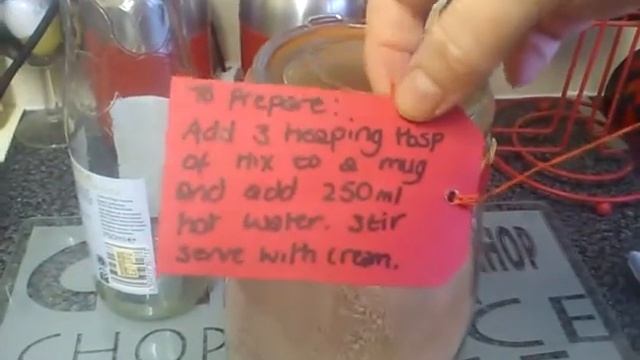 To Prepare:
Add 3 Heaping tbsp
of mix to a mug
and add 250ml
hot water. Stir
serve with cream.
CHOP
CHOP
CE